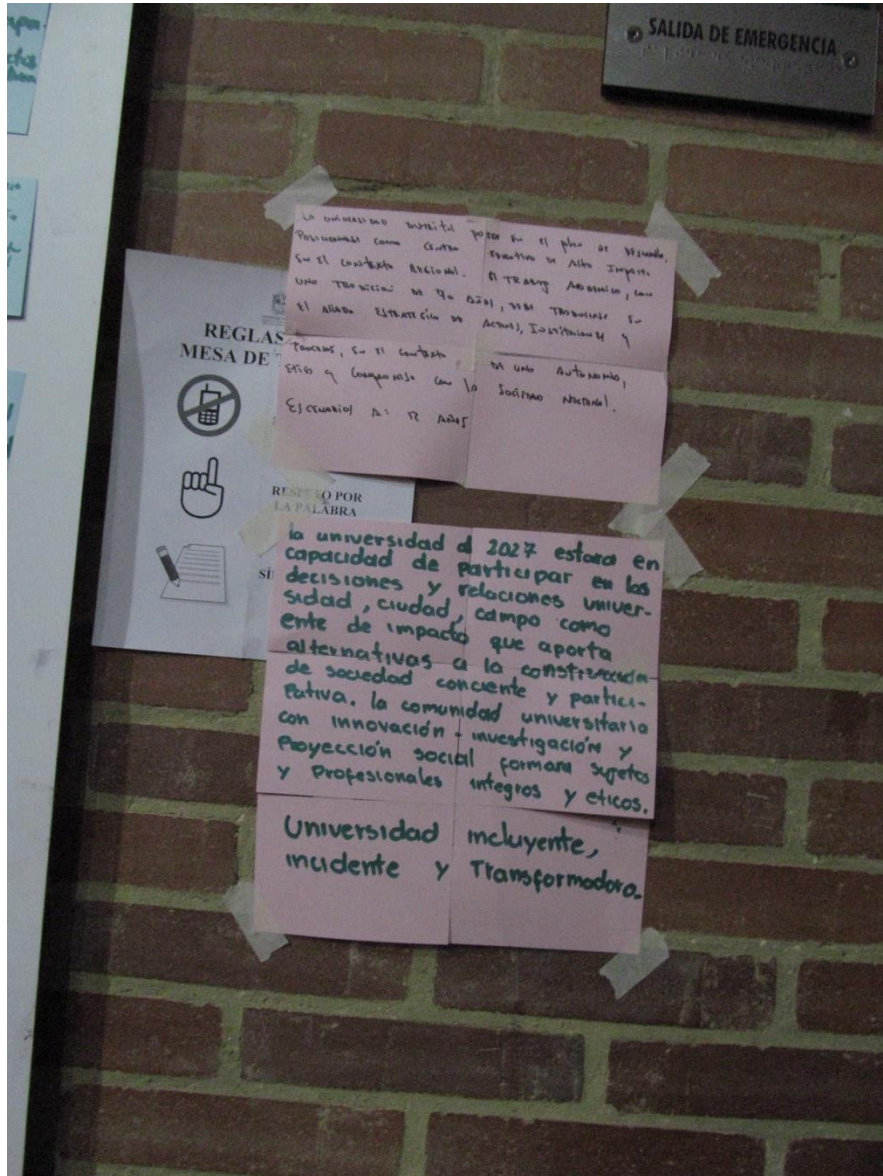 SALIDA DE EMERGENCIA
La universidad distrital podra en el plan de
Posicionarse como Centro Educativo de Alto Impacto
En el contexto Regional. El Trabajo Academico, con
una Tradición de 70 años, debe Traducirse en
El Aliado Estratégico de Actores, Instituciones y
Procesos, en el contexto de una Autonomia,
Etica y Compromiso con la Sociedad Nacional.
Escenarios A: 12 Años
REGLAS
MESA DE
RESPETO POR
LA PALABRA
la universidad al 2027 estara en
capacidad de participar en las
decisiones y relaciones univer-
sidad, ciudad, campo como
ente de impacto que aporta
alternativas a la construcción
de sociedad conciente y partici-
pativa. la comunidad universitaria
con innovación - investigación y
Proyección social formara sujetos
y Profesionales integros y eticos.
Universidad incluyente,
incidente y Transformadora.